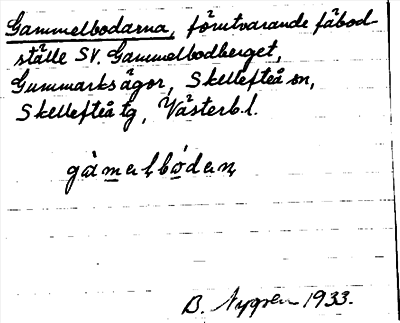 Gammelbodarna, förutvarande fäbod-
ställe SV. Gammelbodberget,
Gummarks ägor, Skellefteå sn,
Skellefteå tg, Västerb. l.
gàmelbòdan
B. Nygren 1933.